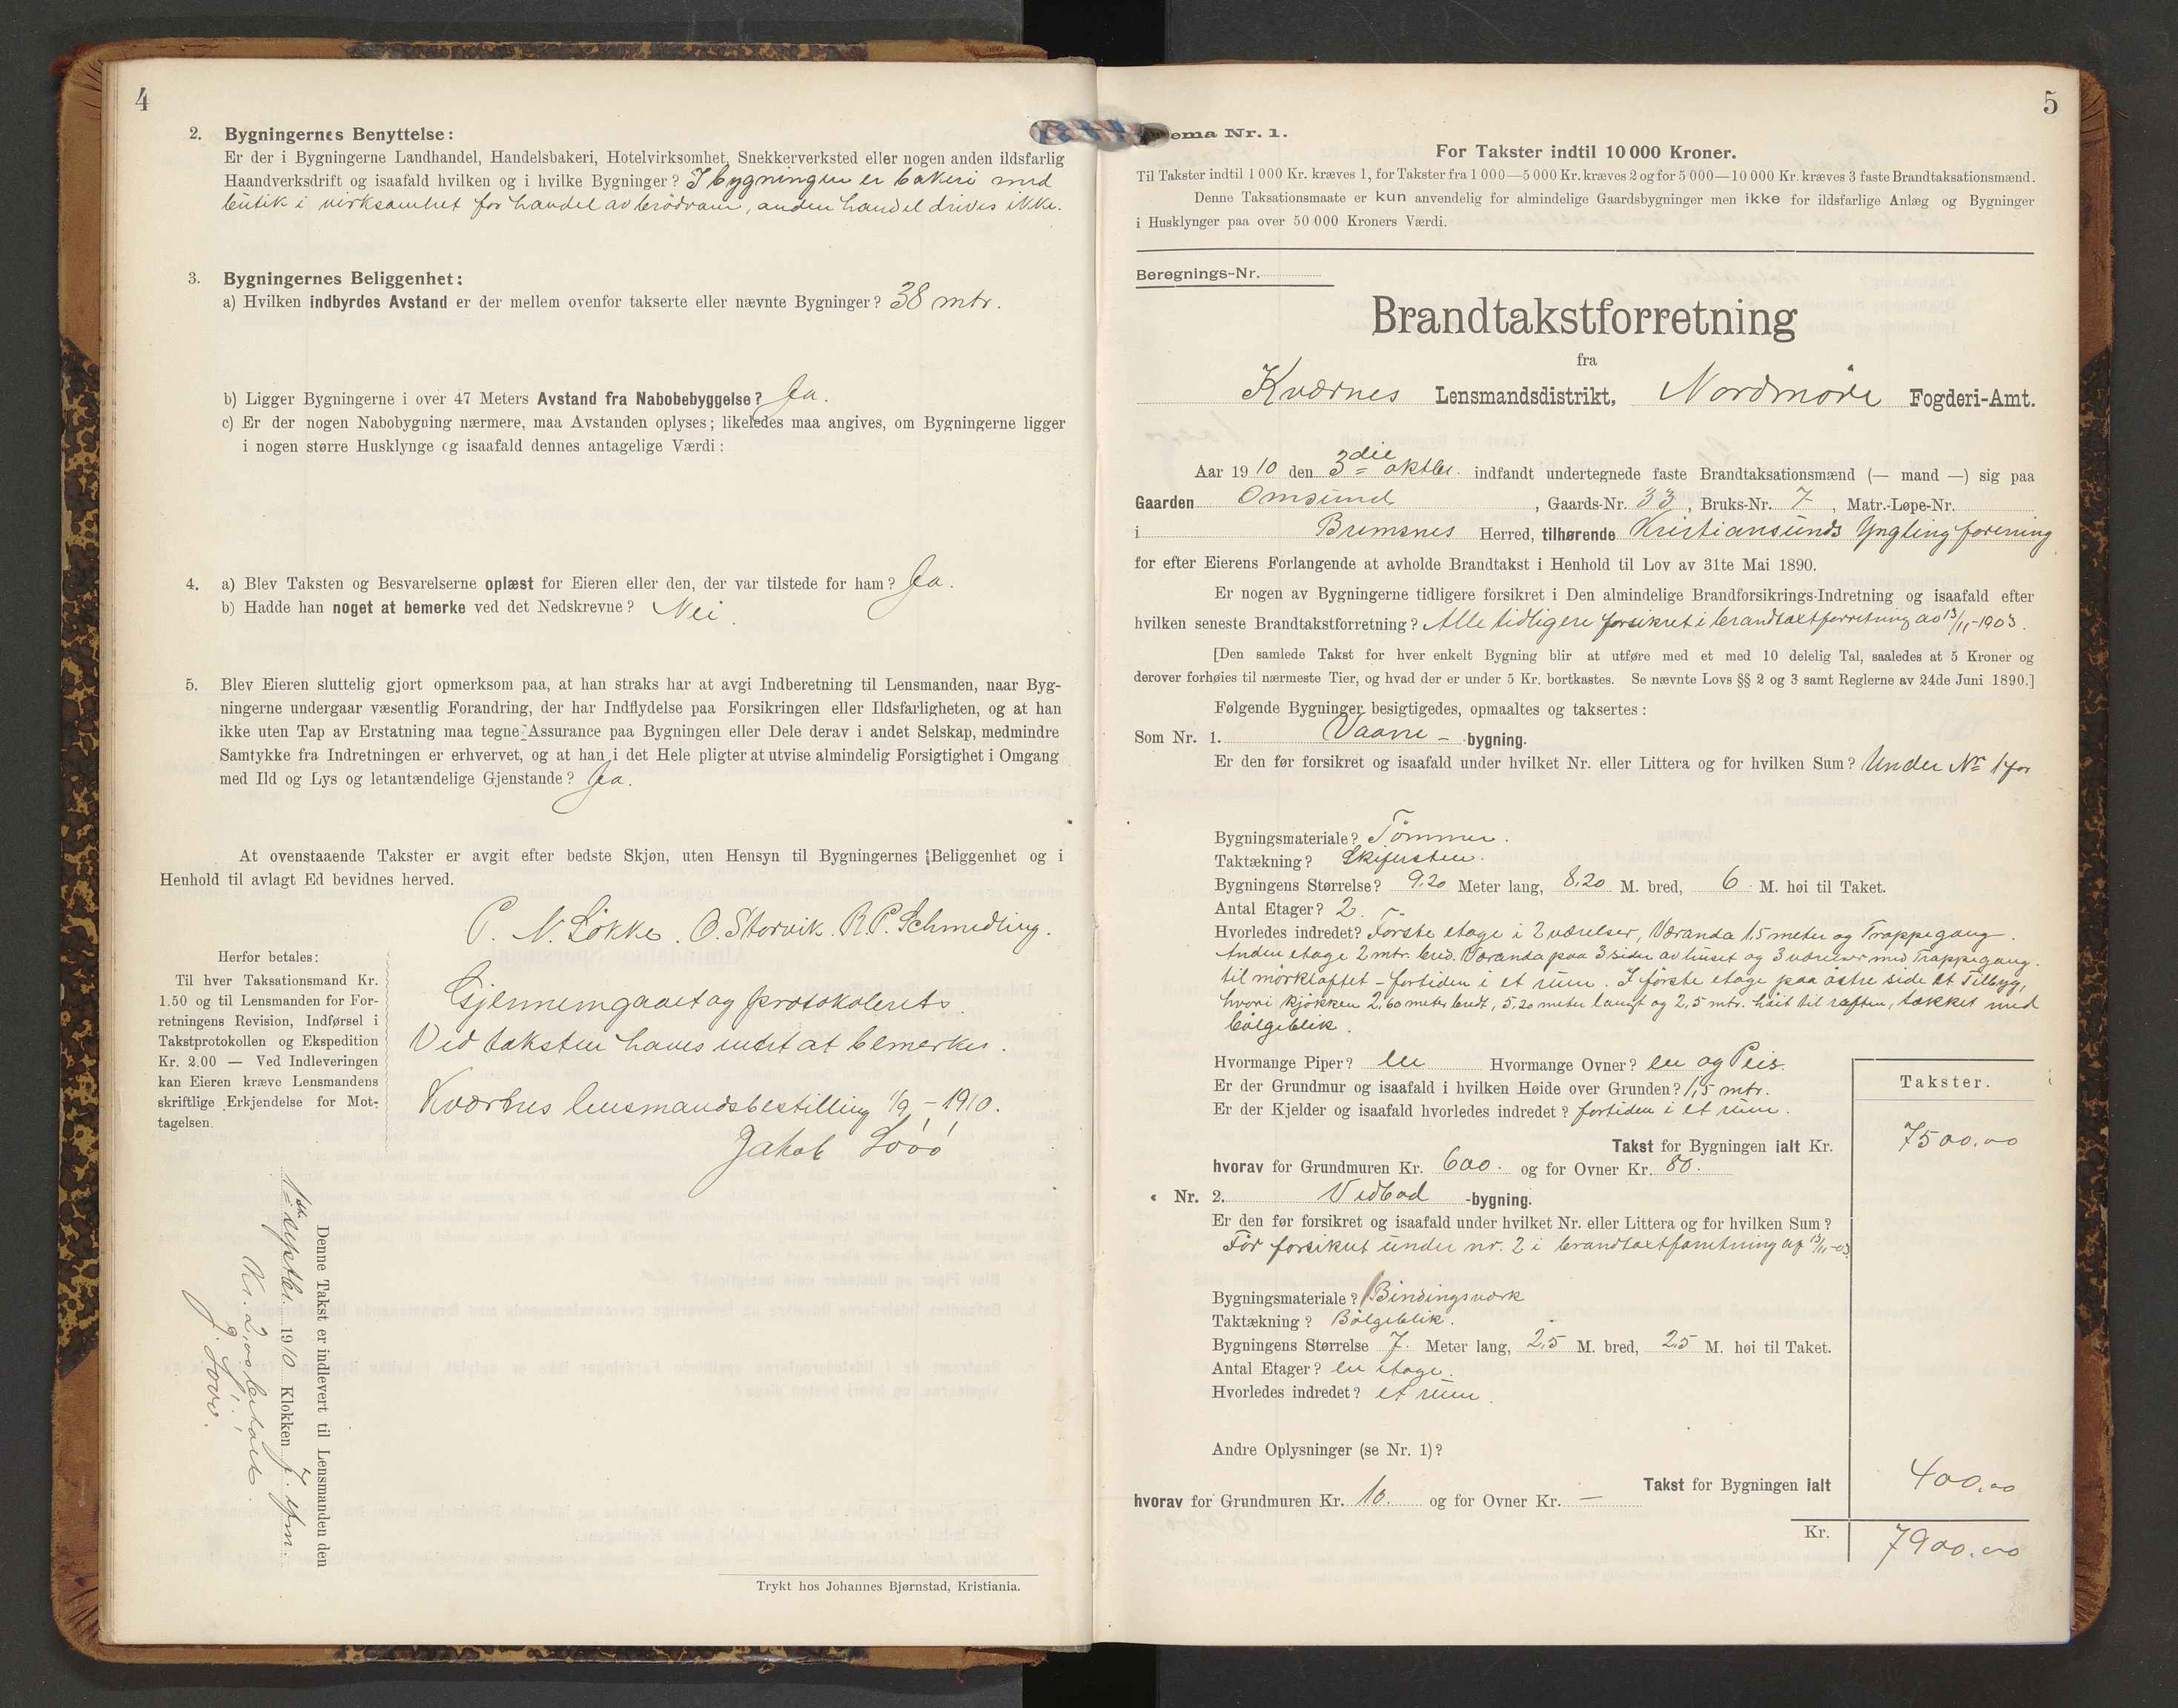 4
2. Bygningernes Benyttelse:
Er der i Bygningerne Landhandel, Handelsbakeri, Hotelvirksomhet, Snekkerverksted eller nogen anden ildsfarlig
Haandverksdrift og isaafald hvilken og i hvilke Bygninger? I bygningen er bakeri med
butik i virksamhet for handel av brödvarer, anden handel drives ikke.
3. Bygningernes Beliggenhet:
a) Hvilken indbyrdes Avstand er der mellem ovenfor takserte eller nævnte Bygninger? 38 mtr.
b) Ligger Bygningerne i over 47 Meters Avstand fra Nabobebyggelse? Ja.
c) Er der nogen Nabobygning nærmere, maa Avstanden oplyses; likeledes maa angives, om Bygningerne ligger
i nogen større Husklynge og isaafald dennes antagelige Værdi:
4. a) Blev Taksten og Besvarelserne oplæst for Eieren eller den, der var tilstede for ham? Ja.
b) Hadde han noget at bemerke ved det Nedskrevne? Nei.
5. Blev Eieren sluttelig gjort opmerksom paa, at han straks har at avgi Indberetning til Lensmanden, naar Byg-
ningerne undergaar væsentlig Forandring, der har Indflydelse paa Forsikringen eller Ildsfarligheten, og at han
ikke uten Tap av Erstatning maa tegne Assurance paa Bygningen eller Dele derav i andet Selskap, medmindre
Samtykke fra Indretningen er erhvervet, og at han i det Hele pligter at utvise almindelig Forsigtighet i Omgang
med Ild og Lys og letantændelige Gjenstande? Ja.
At ovenstaaende Takster er avgit efter bedste Skjøn, uten Hensyn til Bygningernes Beliggenhet og i
Henhold til avlagt Ed bevidnes herved.
P. N. Løkke. O. Storvik. R. P. Schmedling.
Herfor betales:
Til hver Taksationsmand Kr.
1.50 og til Lensmanden for For-
retningens Revision, Indførsel i
Takstprotokollen og Ekspedition
Kr. 2.00 — Ved Indleveringen
kan Eieren kræve Lensmandens
skriftlige Erkjendelse for Mot-
tagelsen.
Gjennemgaaet og protokoleret.
Ved taksten haves intet at bemerke.
Kværnes lensmandsbestilling 1/9 - 1910.
Jakob Lööö
Denne Takst er indlevert til Lensmanden den
1ste septbr. 1910 Klokken 7. efm.
Kr. 2,00 betalt.
J. Lööö.
Trykt hos Johannes Bjørnstad, Kristiania.
5
ema Nr. 1.
For Takster indtil 10 000 Kroner.
Til Takster indtil 1 000 Kr. kræves 1, for Takster fra 1 000—5 000 Kr. kræves 2 og for 5 000—10 000 Kr. kræves 3 faste Brandtaksationsmænd.
Denne Taksationsmaate er kun anvendelig for almindelige Gaardsbygninger men ikke for ildsfarlige Anlæg og Bygninger
i Husklynger paa over 50 000 Kroners Værdi.
Beregnings-Nr.
Brandtakstforretning
fra
Kværnes Lensmandsdistrikt, Nordmöre Fogderi-Amt.
Aar 1910 den 3die oktbr. indfandt undertegnede faste Brandtaksationsmænd (— mand —) sig paa
Gaarden Omsund, Gaards-Nr. 33, Bruks-Nr. 7, Matr.-Løpe-Nr.
i Bremsnes Herred, tilhørende Kristiansunds Yngling forening
for efter Eierens Forlangende at avholde Brandtakst i Henhold til Lov av 31te Mai 1890.
Er nogen av Bygningerne tidligere forsikret i Den almindelige Brandforsikrings-Indretning og isaafald efter
hvilken seneste Brandtakstforretning? Alle tidligere forsikret i brandtaxtforretning av 13/11-1903.
[Den samlede Takst for hver enkelt Bygning blir at utføre med et med 10 delelig Tal, saaledes at 5 Kroner og
derover forhøies til nærmeste Tier, og hvad der er under 5 Kr. bortkastes. Se nævnte Lovs §§ 2 og 3 samt Reglerne av 24de Juni 1890.]
Følgende Bygninger besigtigedes, opmaaltes og taksertes:
Som Nr. 1. Vaane - bygning.
Er den før forsikret og isaafald under hvilket Nr. eller Littera og for hvilken Sum? Under Nr 1 for
Bygningsmateriale? Tömmer.
Taktækning? Skifersten.
Bygningens Størrelse? 9,20 Meter lang, 8,20 M. bred, 6 M. høi til Taket.
Antal Etager? 2.
Hvorledes indredet? Förste etage i 2 værelser, Veranda 1,5 meter og Trappegang.
Anden etage 2 mtr. bred. Veranda paa 3 sider av huset og 3 værelser med Trappegang
til mörkloftet - fortiden i et rum. I förste etage paa östre side et Tilbyg,
hvori kjökken 2,60 meter bredt, 5,20 meter langt og 2,5 mtr. höit til raften, tækket med
bölgeblik.
Hvormange Piper? en Hvormange Ovner? en og Peis.
Er der Grundmur og isaafald i hvilken Høide over Grunden? 1,5 mtr.
Er der Kjelder og isaafald hvorledes indredet? fortiden i et rum.
Takster.
Takst for Bygningen ialt Kr. 7500.00
hvorav for Grundmuren Kr. 600. og for Ovner Kr. 80.
Nr. 2. Vedbod -bygning.
Er den før forsikret og isaafald under hvilket Nr. eller Littera og for hvilken Sum?
Før forsikret under nr. 2 i brandtaxtforretning af 13/11-03.
Bygningsmateriale? Bindingsværk
Taktækning? Bölgeblik.
Bygningens Størrelse 7. Meter lang, 2,5 M. bred, 2,5 M. høi til Taket.
Antal Etager? en etage.
Hvorledes indredet? et rum.
Andre Oplysninger (se Nr. 1)?
Takst for Bygningen ialt 400.00
hvorav for Grundmuren Kr. 10. og for Ovner Kr. —
Kr. 7900.00